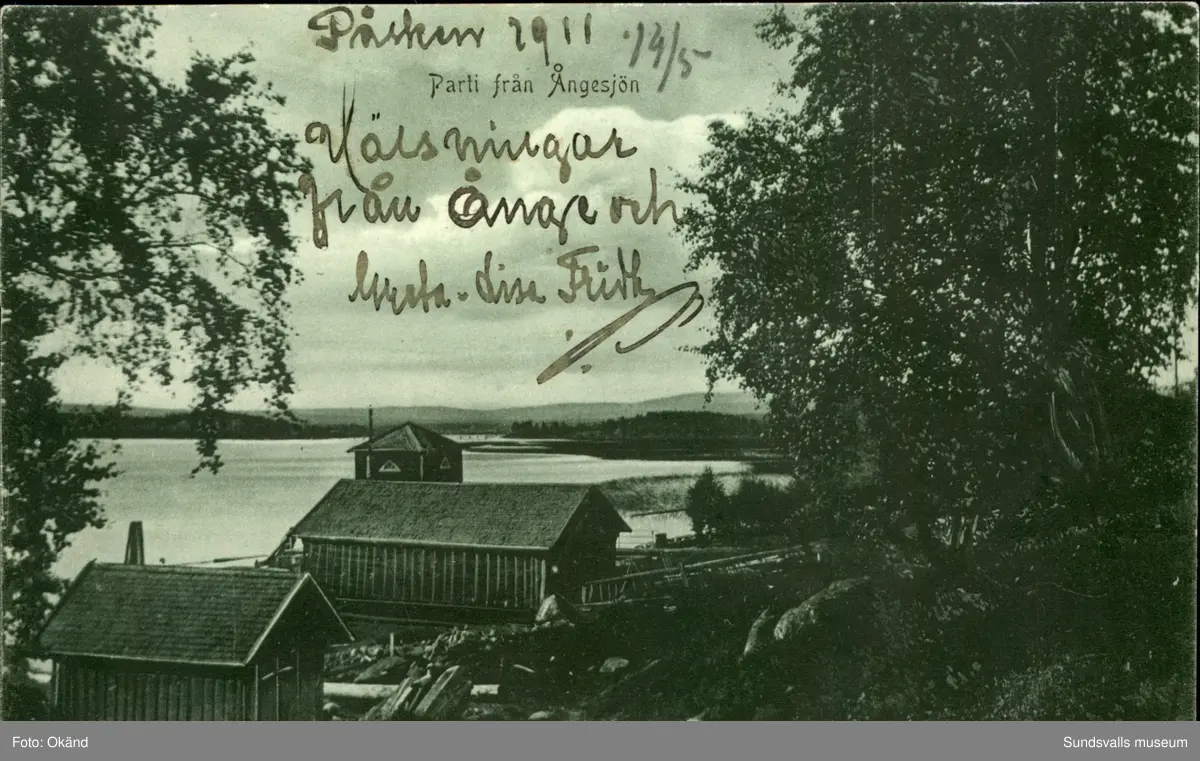 Påsken 1911 14/5
Parti från Ångesjön
Hälsningar
från Ånge och
Greta-Lisa Fridh
Foto: Okänd
Sundsvalls museum